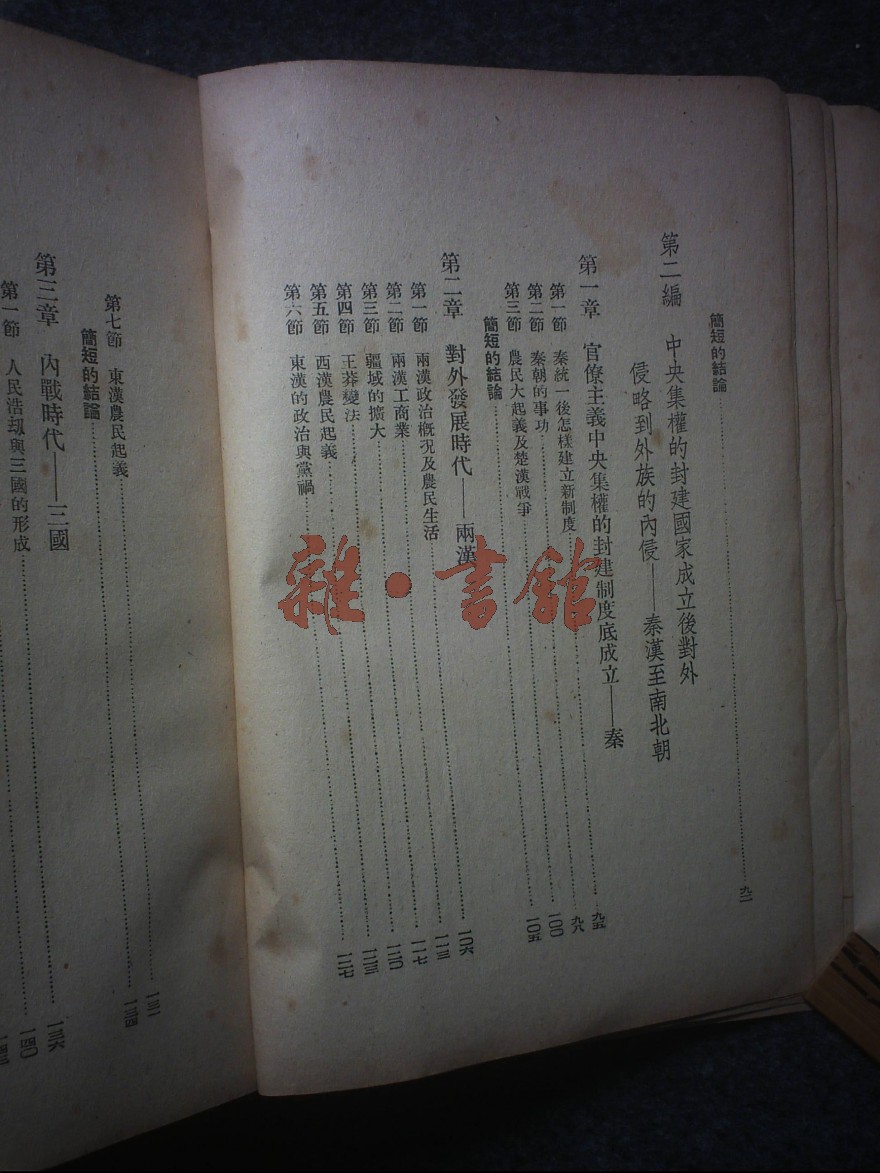 簡短的結論……九二
第二編 中央集權的封建國家成立後對外
侵略到外族的內侵——秦漢至南北朝
第一章 官僚主義中央集權的封建制度底成立——秦
第一節 秦統一後怎樣建立新制度……九五
第二節 秦朝的事功……九八
第三節 農民大起義及楚漢戰爭……一〇〇
簡短的結論……一〇五
第二章 對外發展時代——兩漢
第一節 兩漢政治概況及農民生活……一〇六
第二節 兩漢工商業……一一三
第三節 疆域的擴大……一一七
第四節 王莽變法……一二〇
第五節 西漢農民起義……一二三
第六節 東漢的政治與黨禍……一二七
第七節 東漢農民起義……一三二
簡短的結論……一三四
第三章 內戰時代——三國
第一節 人民浩劫與三國的形成……一三六
一四〇
雜·書館